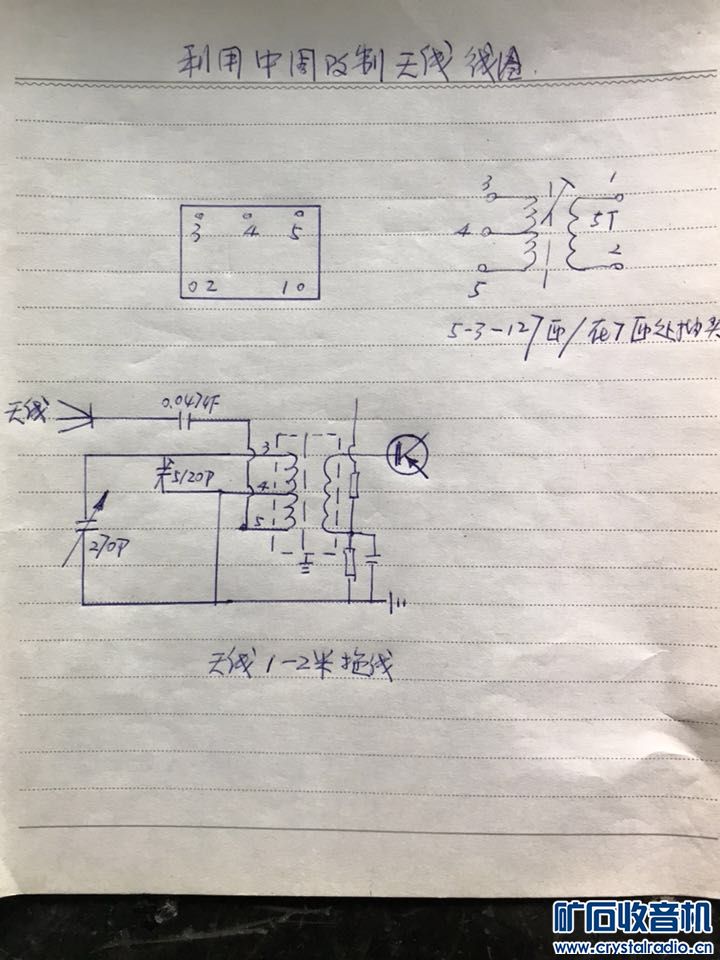 利用中周改制天线线圈.
3 4 5
2 1
3 1
4 5T
2
5
5-3-127匝/在7匝处抽头
天线 0.047uF
3
4 5/20P
5
270P
天线1-2米拖线
矿石收音机
www.crystalradio.cn